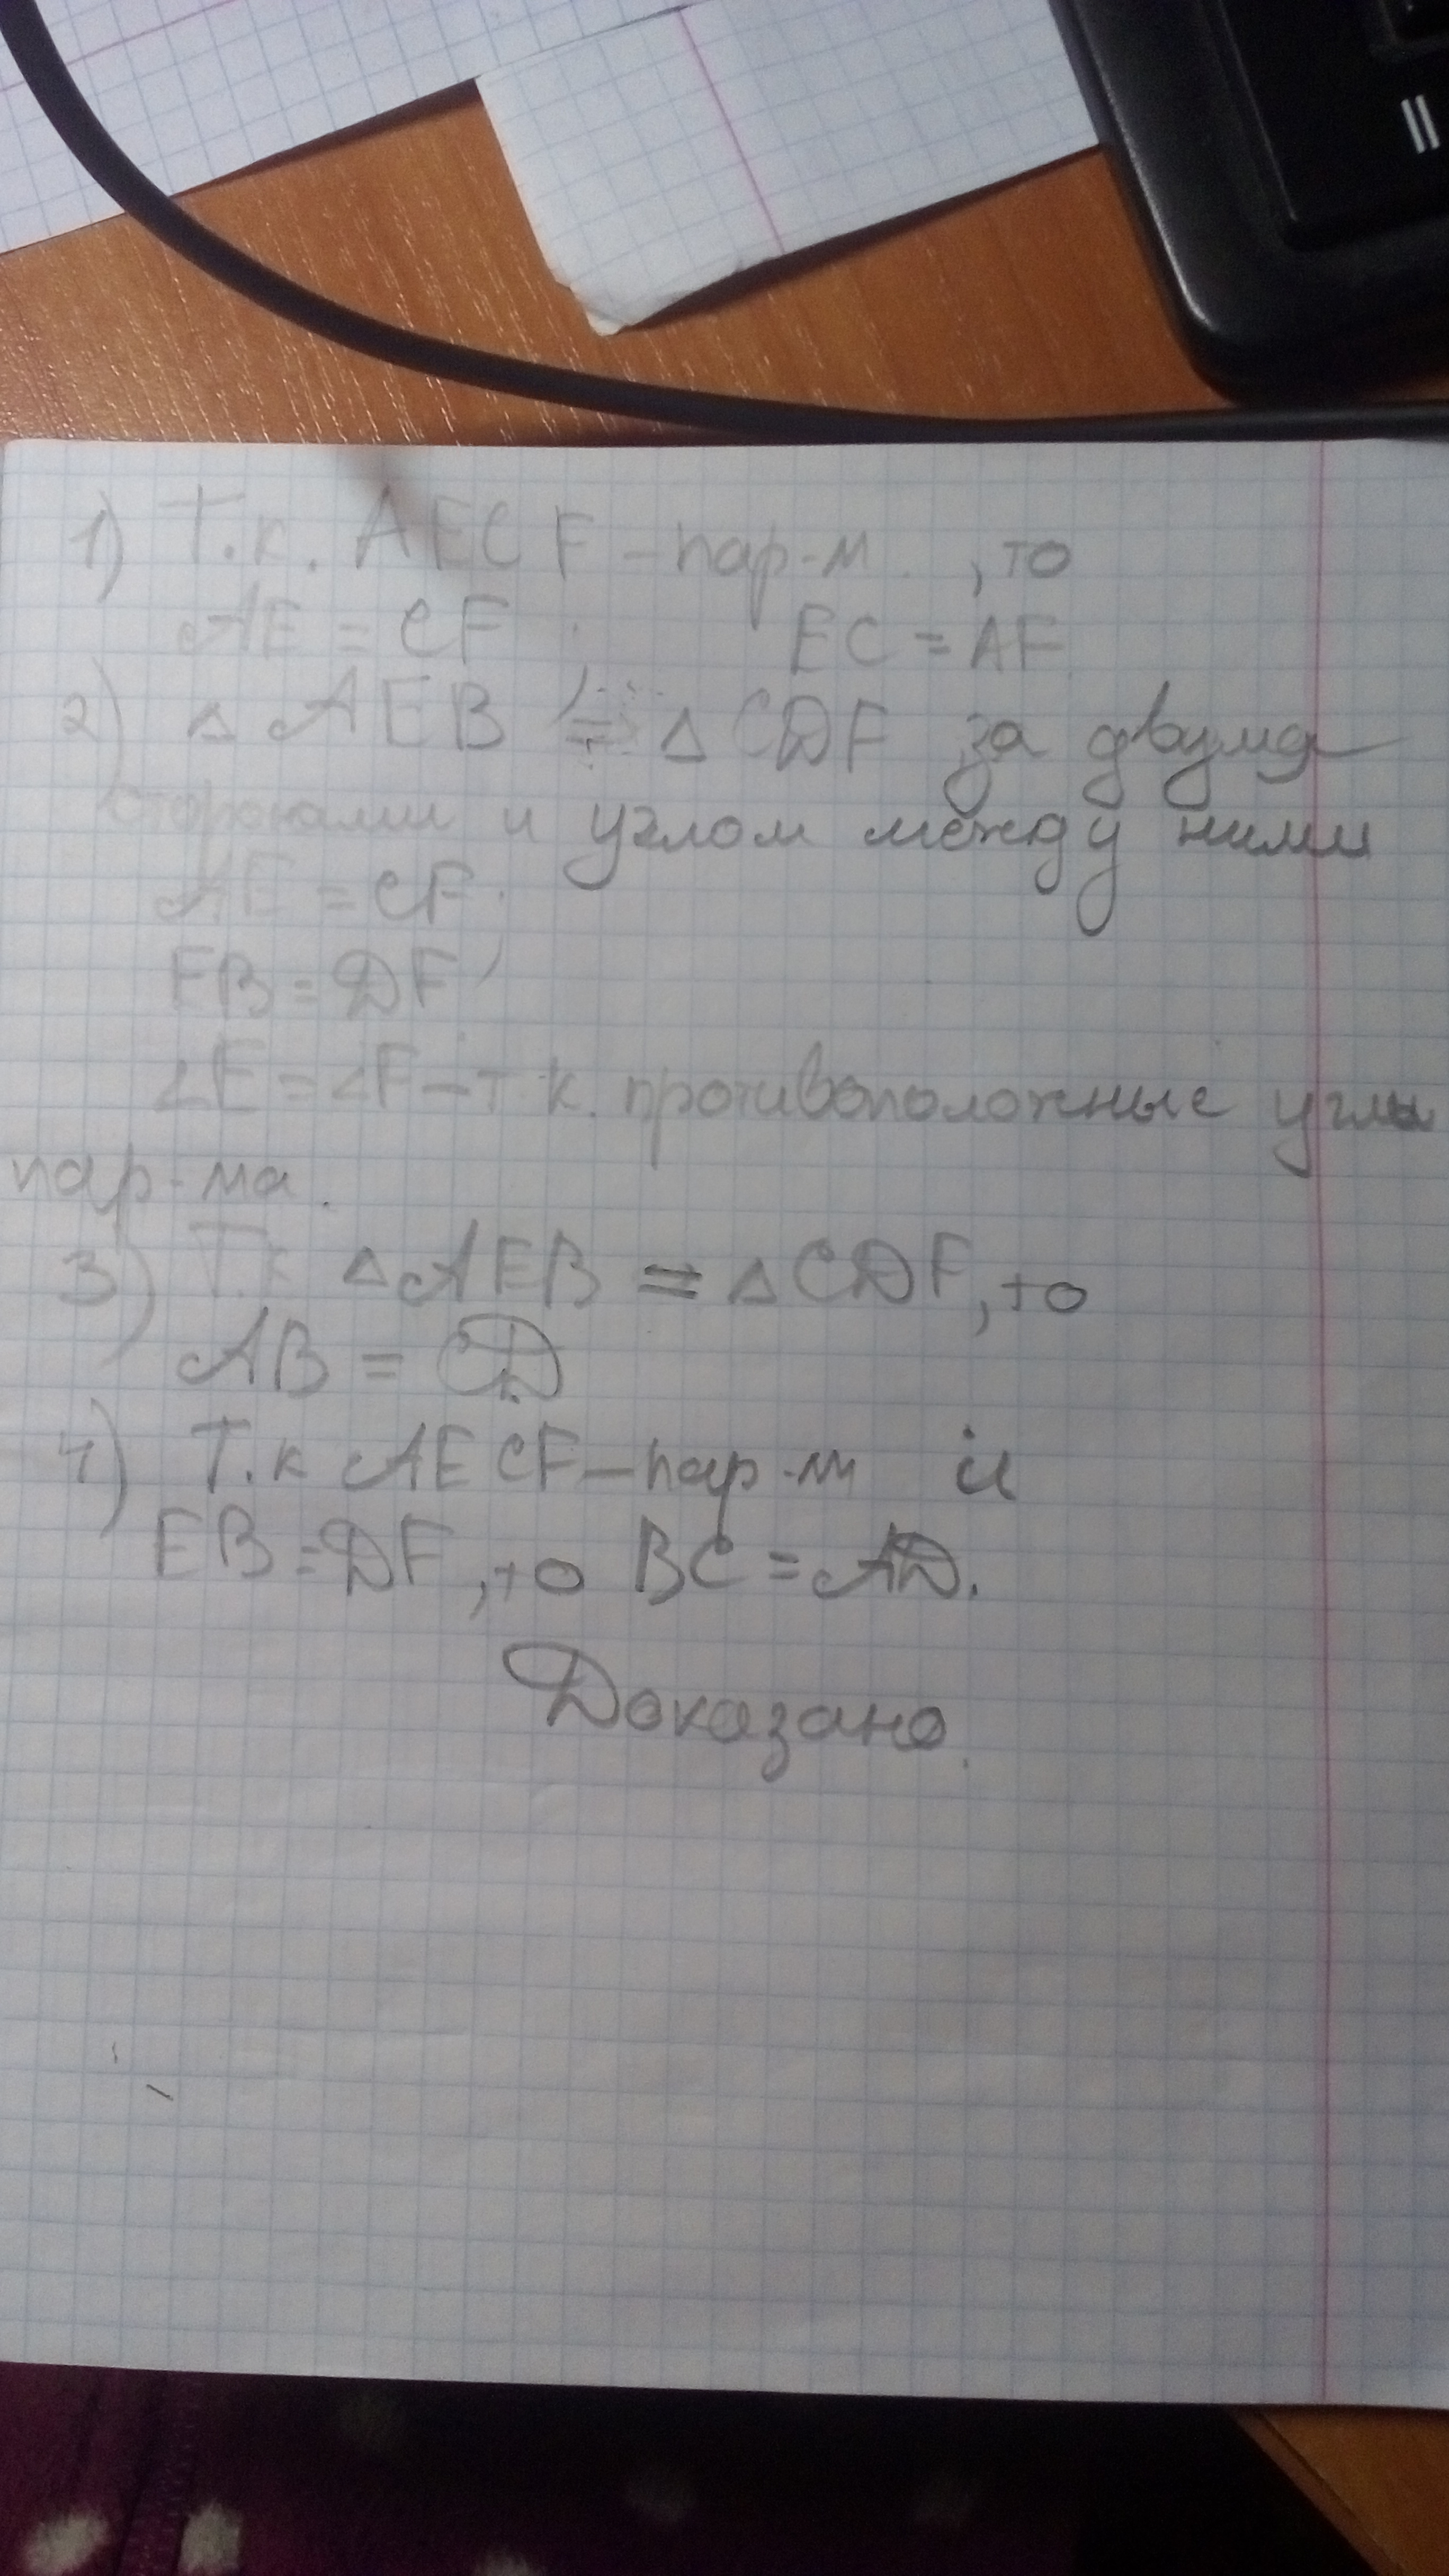 1) Т.к. AECF - пар-м. , то
AE = CF EC = AF
2) △ AEB = △ CDF за двумя
сторонами и углом между ними
AE = CF
EB = DF
∠E = ∠F - т.к. противоположные углы
пар-ма.
3) Т.к △ AEB = △ CDF, то
AB = CD
4) Т.к AECF - пар-м и
EB = DF, то BC = AD.
Доказано.